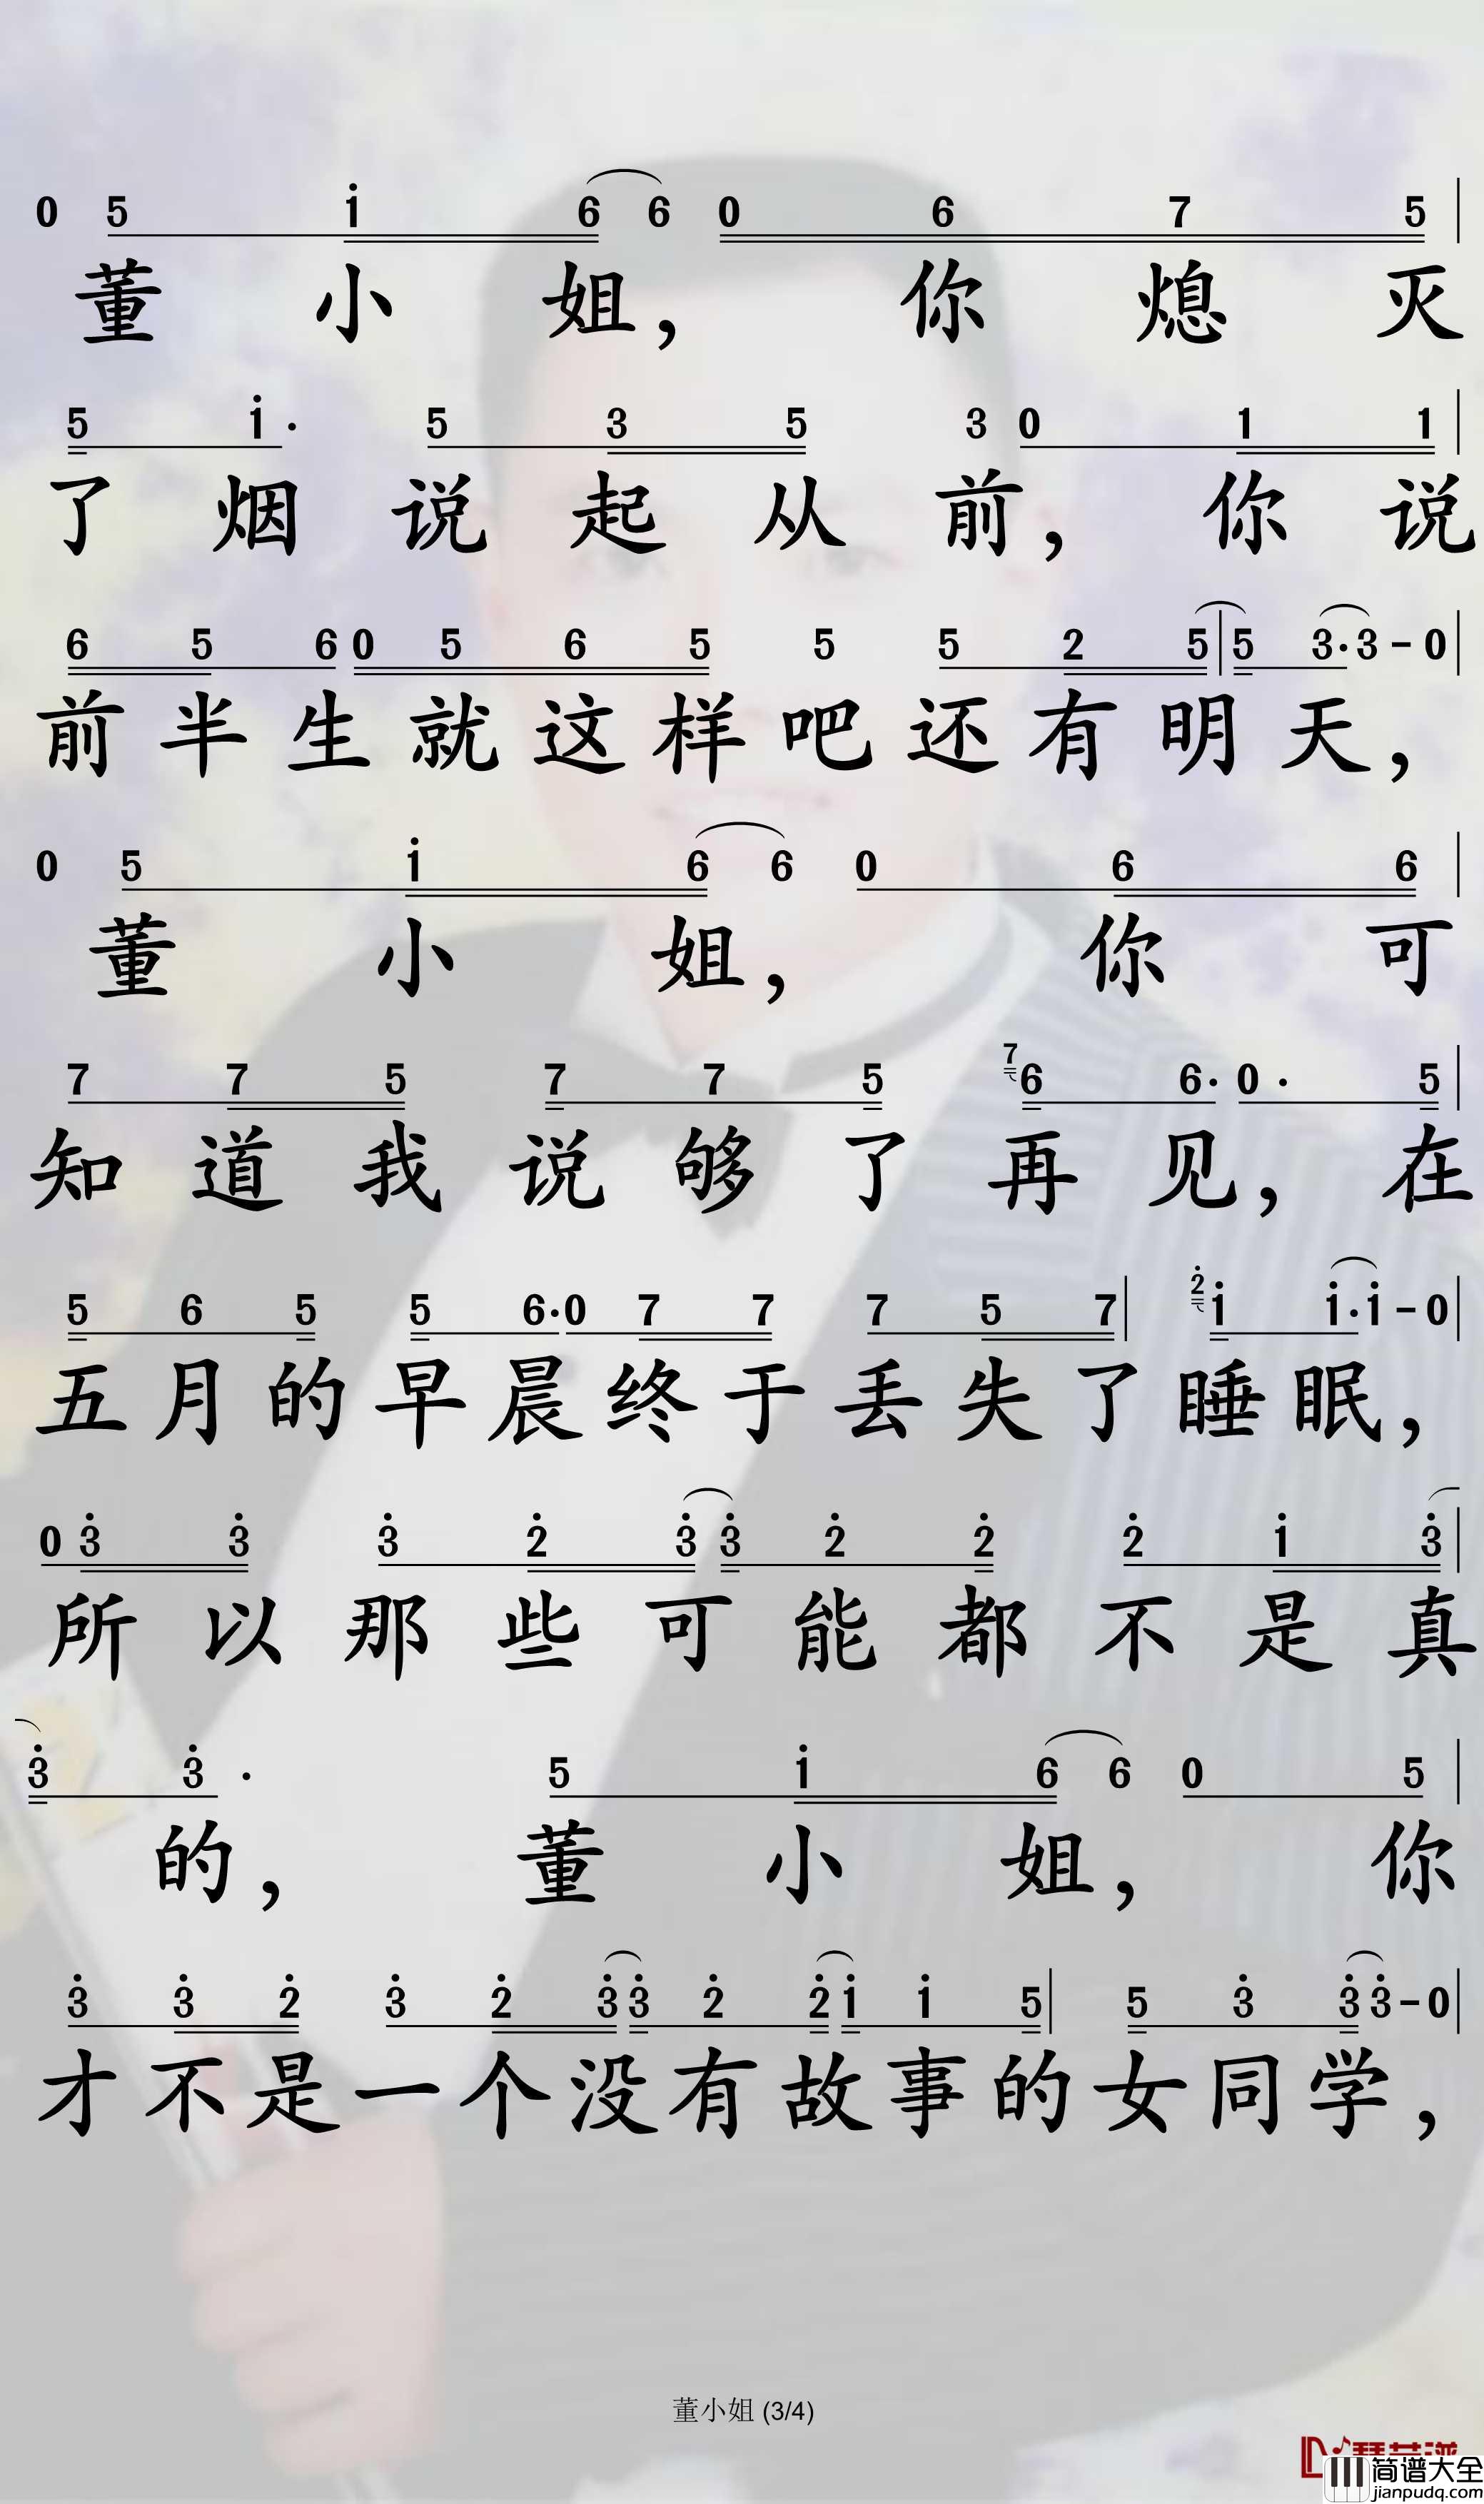 0 5 i 6 6 0 6 7 5
董小姐，你熄灭
5 i· 5 3 5 3 0 1 1
了烟说起从前，你说
6 5 6 0 5 6 5 5 5 2 5 | 5 3·3 - 0
前半生就这样吧还有明天，
0 5 i 6 6 0 6 6
董小姐，你可
7 7 5 7 7 5 7 6 6· 0· 5
知道我说够了再见，在
5 6 5 5 6·0 7 7 7 5 7 | 2̇ i i·i - 0
五月的早晨终于丢失了睡眠，
0 3̇ 3̇ 3̇ 2̇ 3̇ 3̇ 2̇ 2̇ 2̇ i 3̇
所以那些可能都不是真
3̇ 3̇· 5 i 6 6 0 5
的，董小姐，你
3̇ 3̇ 2̇ 3̇ 2̇ 3̇ 3̇ 2̇ 2̇ i i 5 | 5 3̇ 3̇ 3̇ - 0
才不是一个没有故事的女同学，
董小姐 (3/4)
简谱大全
jianpudq.com